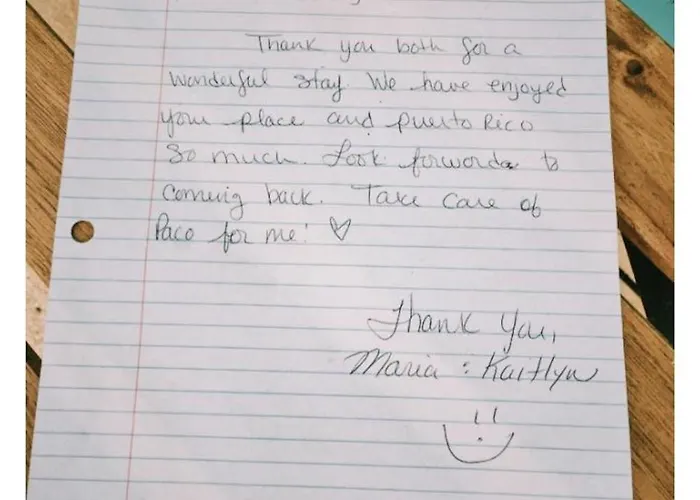 Thank you both for a
wonderful stay. We have enjoyed
your place and puerto Rico
so much. Look forward to
coming back. Take care of
Paco for me! ♡
Thank you,
Maria : Kaitlyn